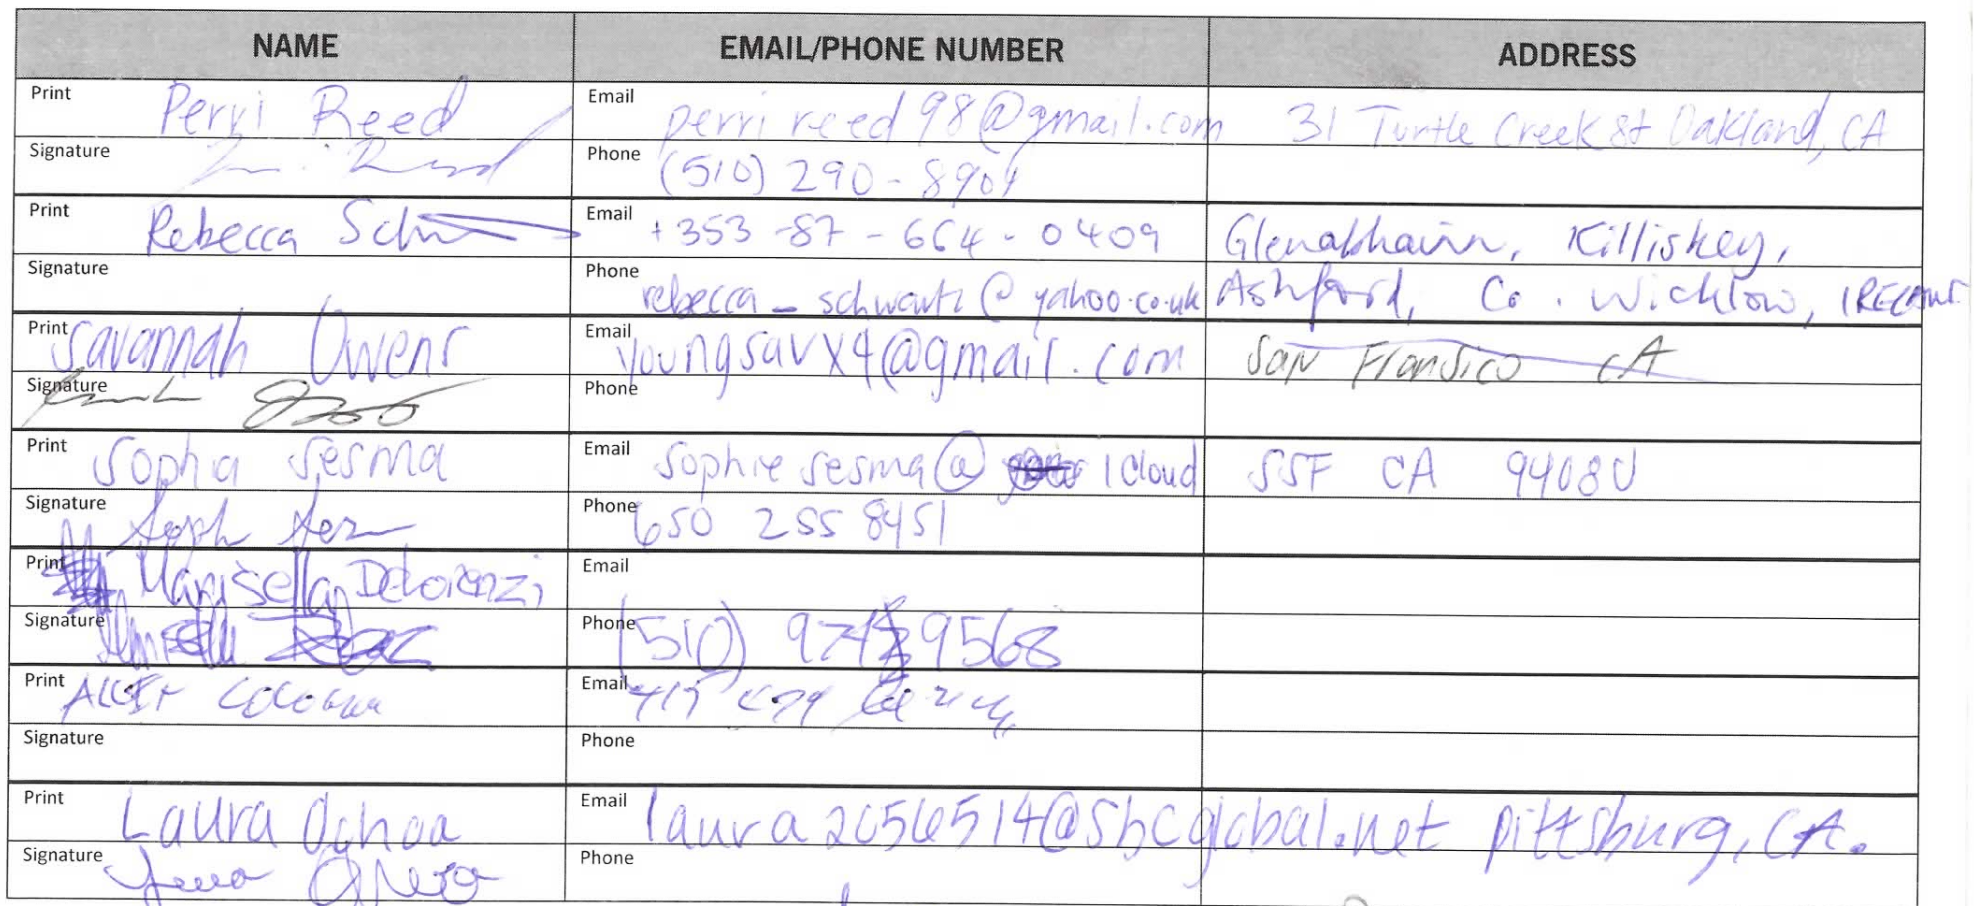 NAME EMAIL/PHONE NUMBER ADDRESS
Print Perri Reed Email perrireed98@gmail.com 31 Turtle Creek St Oakland, CA
Signature Phone (510) 290-8904
Print Rebecca Email +353-87-664-0409 Killiskey,
Signature Phone rebecca_schwartz@yahoo.co.uk Ashford, Co. Wicklow, IRELAND
Print Savannah Owens Email youngsavx4@gmail.com San Fransico CA
Signature Phone
Print Sophia Sesma Email sophiesesma@ icloud SSF CA 94080
Signature Phone 650 255 8451
Print Marisella DeLorenzi Email
Signature Phone (510)
Print Email
Signature Phone
Print Laura Ochoa Email laura2056514@sbcglobal.net pittsburg, CA.
Signature Phone